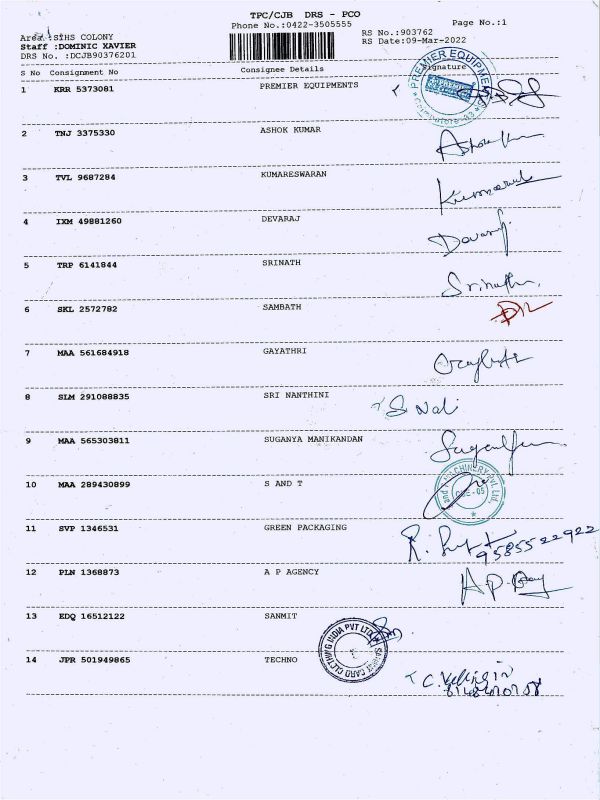 TPC/CJB DRS - PCO
Phone No.:0422-3505555
Page No.:1
Area :SIHS COLONY
RS No.:903762
Staff :DOMINIC XAVIER
RS Date:09-Mar-2022
DRS No. :DCJB90376201
S No Consignment No Consignee Details Signature
1 KRR 5373081 PREMIER EQUIPMENTS
PREMIER EQUIPMENTS
2 TNJ 3375330 ASHOK KUMAR
3 TVL 9687284 KUMARESWARAN
4 IXM 49881260 DEVARAJ
5 TRP 6141844 SRINATH Srinath
6 SKL 2572782 SAMBATH
7 MAA 561684918 GAYATHRI
8 SLM 291088835 SRI NANTHINI
9 MAA 565303811 SUGANYA MANIKANDAN
10 MAA 289430899 S AND T
MACHINERY Pvt. Ltd.
CBE-05
11 SVP 1346531 GREEN PACKAGING
9585522922
12 PLN 1368873 A P AGENCY A.P.
13 EDQ 16512122 SANMIT
CARD CLOTHING INDIA PVT LTD
14 JPR 501949865 TECHNO